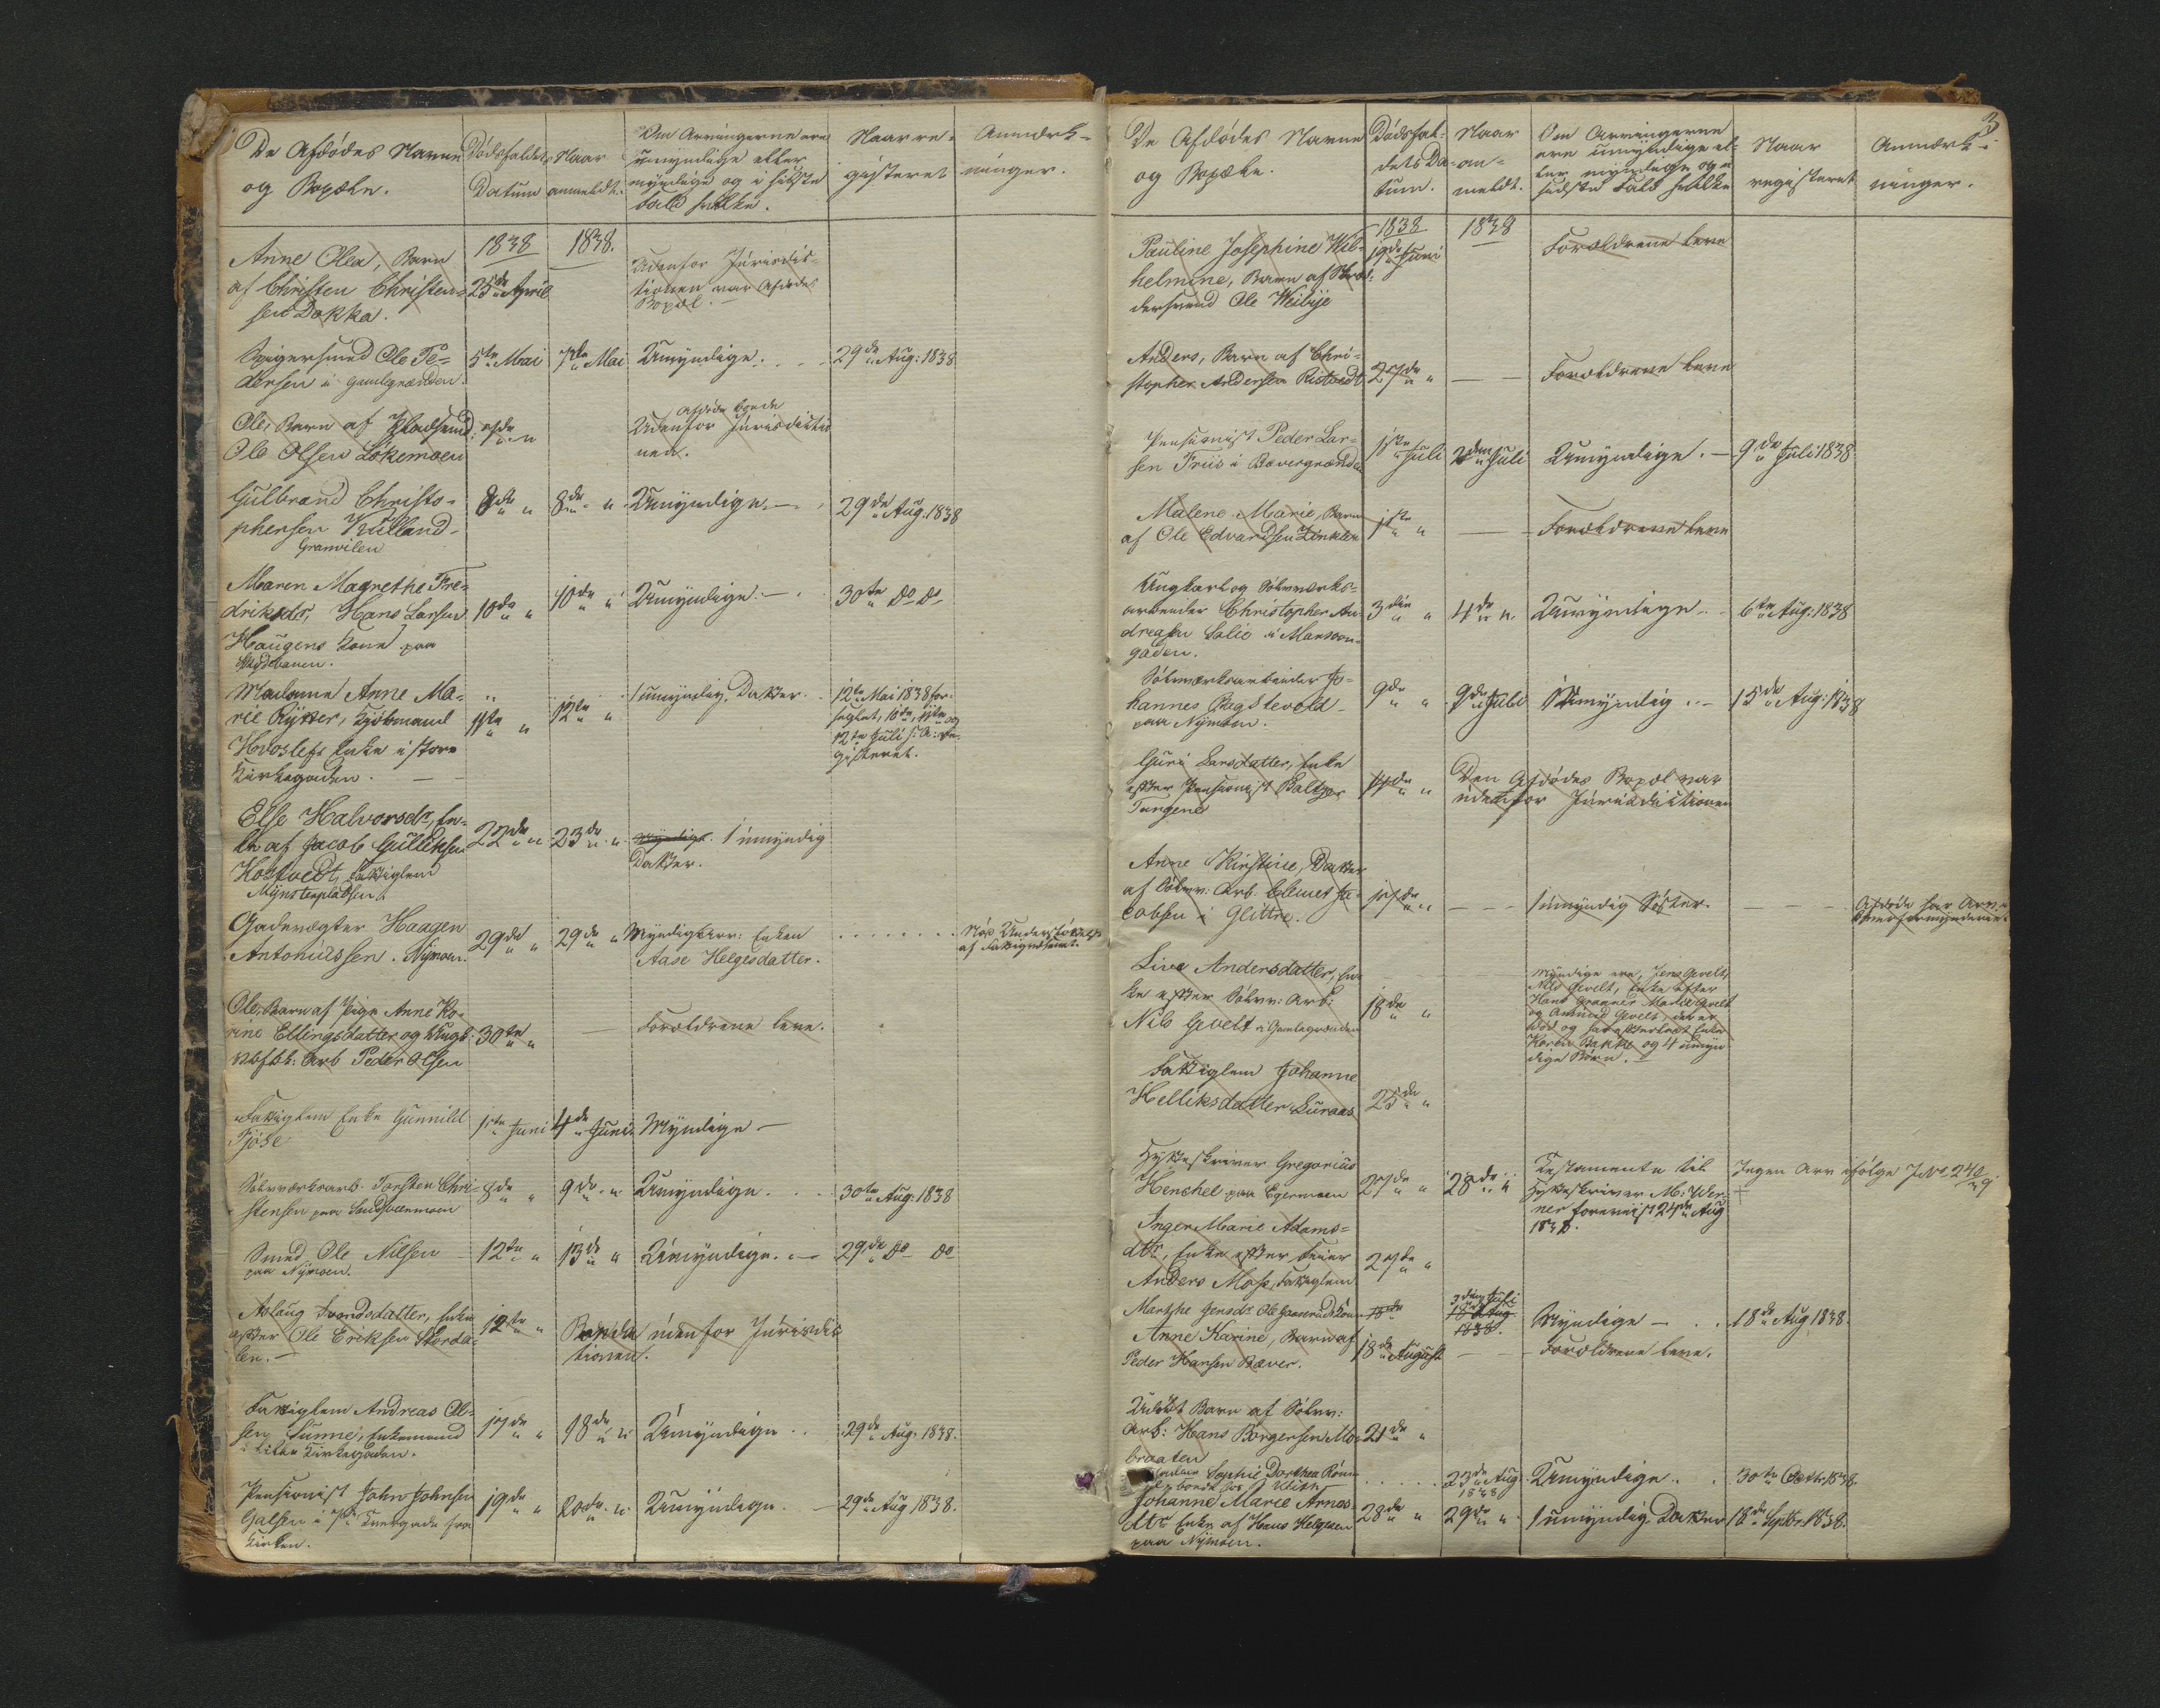 De Afdödes Navne
og Bopæle.
Dödsfaldets
Datum
Naar
anmeldt.
Om Arvingerne ere
umyndige eller
myndige og i sidste
Fald hvilke.
Naar re-
gisteret
Anmærk-
ninger.
1838
1838.
Anne Olea, Barn
af Christen Christen-
sen Dokka.
25de April
Udenfor Jurisdic-
tionen var Afdödes
Bopæl.
Spigersmed Ole Pe-
dersen i Gamlegrænden
5te Mai
7de Mai
Umyndige.
29de Aug: 1838
Ole, Barn af Pladsmd:
Ole Olsen Lökemoen
7de "
Afdöde boede
Udenfor Jurisdictio
nen.
Gulbrand Christo-
phersen Kulland-
Granvilen
8de "
8de "
Umyndige.
29de Aug: 1838
Maren Magrethe Fre-
driksdr, Hans Larsen
Haugens Kone paa
Skydebanen.
10de "
10de "
Umyndige.
30te do do
Madame Anne Ma-
rie Rytter, Kjöbmand
Hvoslefs Enke i store
Kirkegaden.
11te "
12te "
1 umyndig Datter.
12te Mai 1838 for-
seglet, 10de, 11te og
12te Juli s: A: re-
gisteret.
Else Halvorsdr, En-
ke af Jacob Gulliksen
Hostvedt, Fattiglem
Myntenpladsen.
22de "
23de "
Myndige. 1 umyndig
Datter.
Gadevægter Haagen
Antoniussen. Nymoen.
29de "
29de "
Myndig Arv: Enken
Aase Helgesdatter.
Nöd Understöttelse
af Fattigvæsenet.
Ole, Barn af Pige Anne Ka-
rine Ellingsdatter og Ungk:
Peder Olsen
30te "
Forældrene leve.
Fattiglem Enke Gunnild
Fjöse
1ste Juni
4de Juni
Myndige
Sölvværksarb. Torsten Chri-
stensen paa Sandsværmoen
8de "
9de "
Umyndige.
30te Aug: 1838
Smed Ole Nilsen
paa Nymoen.
12te "
13de "
Umyndige.
29de do do
Aslaug Trondsdatter, Enke
efter Ole Eriksen Skorda-
len.
12te "
Boende udenfor Jurisdic
tionen.
Fattiglem Andreas Ol-
sen Sunne, Enkemand
i lille Kirkegaden.
17de "
18de "
Umyndige.
29de Aug. 1838.
Pensionist John Johnsen
Galsen i 7de Tvergade fra
Kirken.
19de "
20de "
Umyndige.
29de Aug 1838.
3
De Afdödes Navne
og Bopæle.
Dödsfal-
dets Da-
tum.
Naar
an-
meldt.
Om Arvingerne
ere umyndige el-
ler myndige og i
sidste Fald hvilke
Naar
registeret
Anmærk-
ninger.
1838
1838
Pauline Josephine Wil-
helmine, Barn af Skræd-
dersvend Ole Weibye
19de Juni
Forældrene leve
Anders, Barn af Chri-
stopher Andersen Ristvedt
27de "
Forældrene leve
Pensionist Peder Lar-
sen Friis i Bævergrænden
1ste Juli
2den Juli
Umyndige.
9de Juli 1838
Malene Marie, Barn
af Ole Edvardsen Zinklen
1ste "
Forældrene leve
Ungkarl og Sölvværks-
arbeider Christopher An
dreasen Salie i Mansoon-
gaden.
3die "
4de "
Umyndige
6te Aug: 1838
Sölvværksarbeider Jo-
hannes Rugstevold
paa Nymoen.
9de "
9de Juli
Umyndig
15de Aug: 1838
Guri Larsdatter, Enke
efter Pensionist Baltzer
Tungene
14de "
Den Afdödes Bopæl var
udenfor Jurisdictionen
Anne Kirstine, Datter
af Sölvv: Arb. Clemet Ja-
cobsen i Glittre.
17de "
1 umyndig Söster.
Afdöde har Arv
Overformynderiet.
Live Andersdatter, En-
ke efter Sölvv: Arb:
Nils Gevelt i Gamlegrænden
18de "
Myndige ere, Jens Gevelt,
Nils Gevelt, Enke efter
Hans Maria Gevelt
og Amund Gevelt, der er
död og har efterladt Enke
Karen Bakke og 4 umyn
dige Börn.
Fattiglem Johanne
Helliksdatter Luraas
25de "
Hytteskriver Gregorius
Henchel paa Egermoen
27de "
28de "
Testamente til
Hytteskriver M: Wer-
ner foreviist 24de Aug
1838.
Ingen Arv ifölge J.No 24 2/9
Inger Marie Adams-
dtr, Enke efter Feier
Anders Mose, Fattiglem
27de "
Marthe Jensdr Ole Gaaserudskone
18de
3die Juli
18de Aug
1838.
Myndige
18de Aug 1838.
Anne Karine, Barn af
Peder Hansen Bæver.
18de August
Forældrene leve.
Udöbt Barn af Sölvv:
Arb: Hans Börgersen Mo-
braaten
21de "
Sophie Dorthea Rönne
23de Aug.
1838
Umyndige.
30te Octbr. 1838.
Johanne Marie Arnes-
dtr Enke af Hans Helgesen
paa Nymoen.
28de "
29de "
1 umyndig Datter
18de Septbr. 1838.